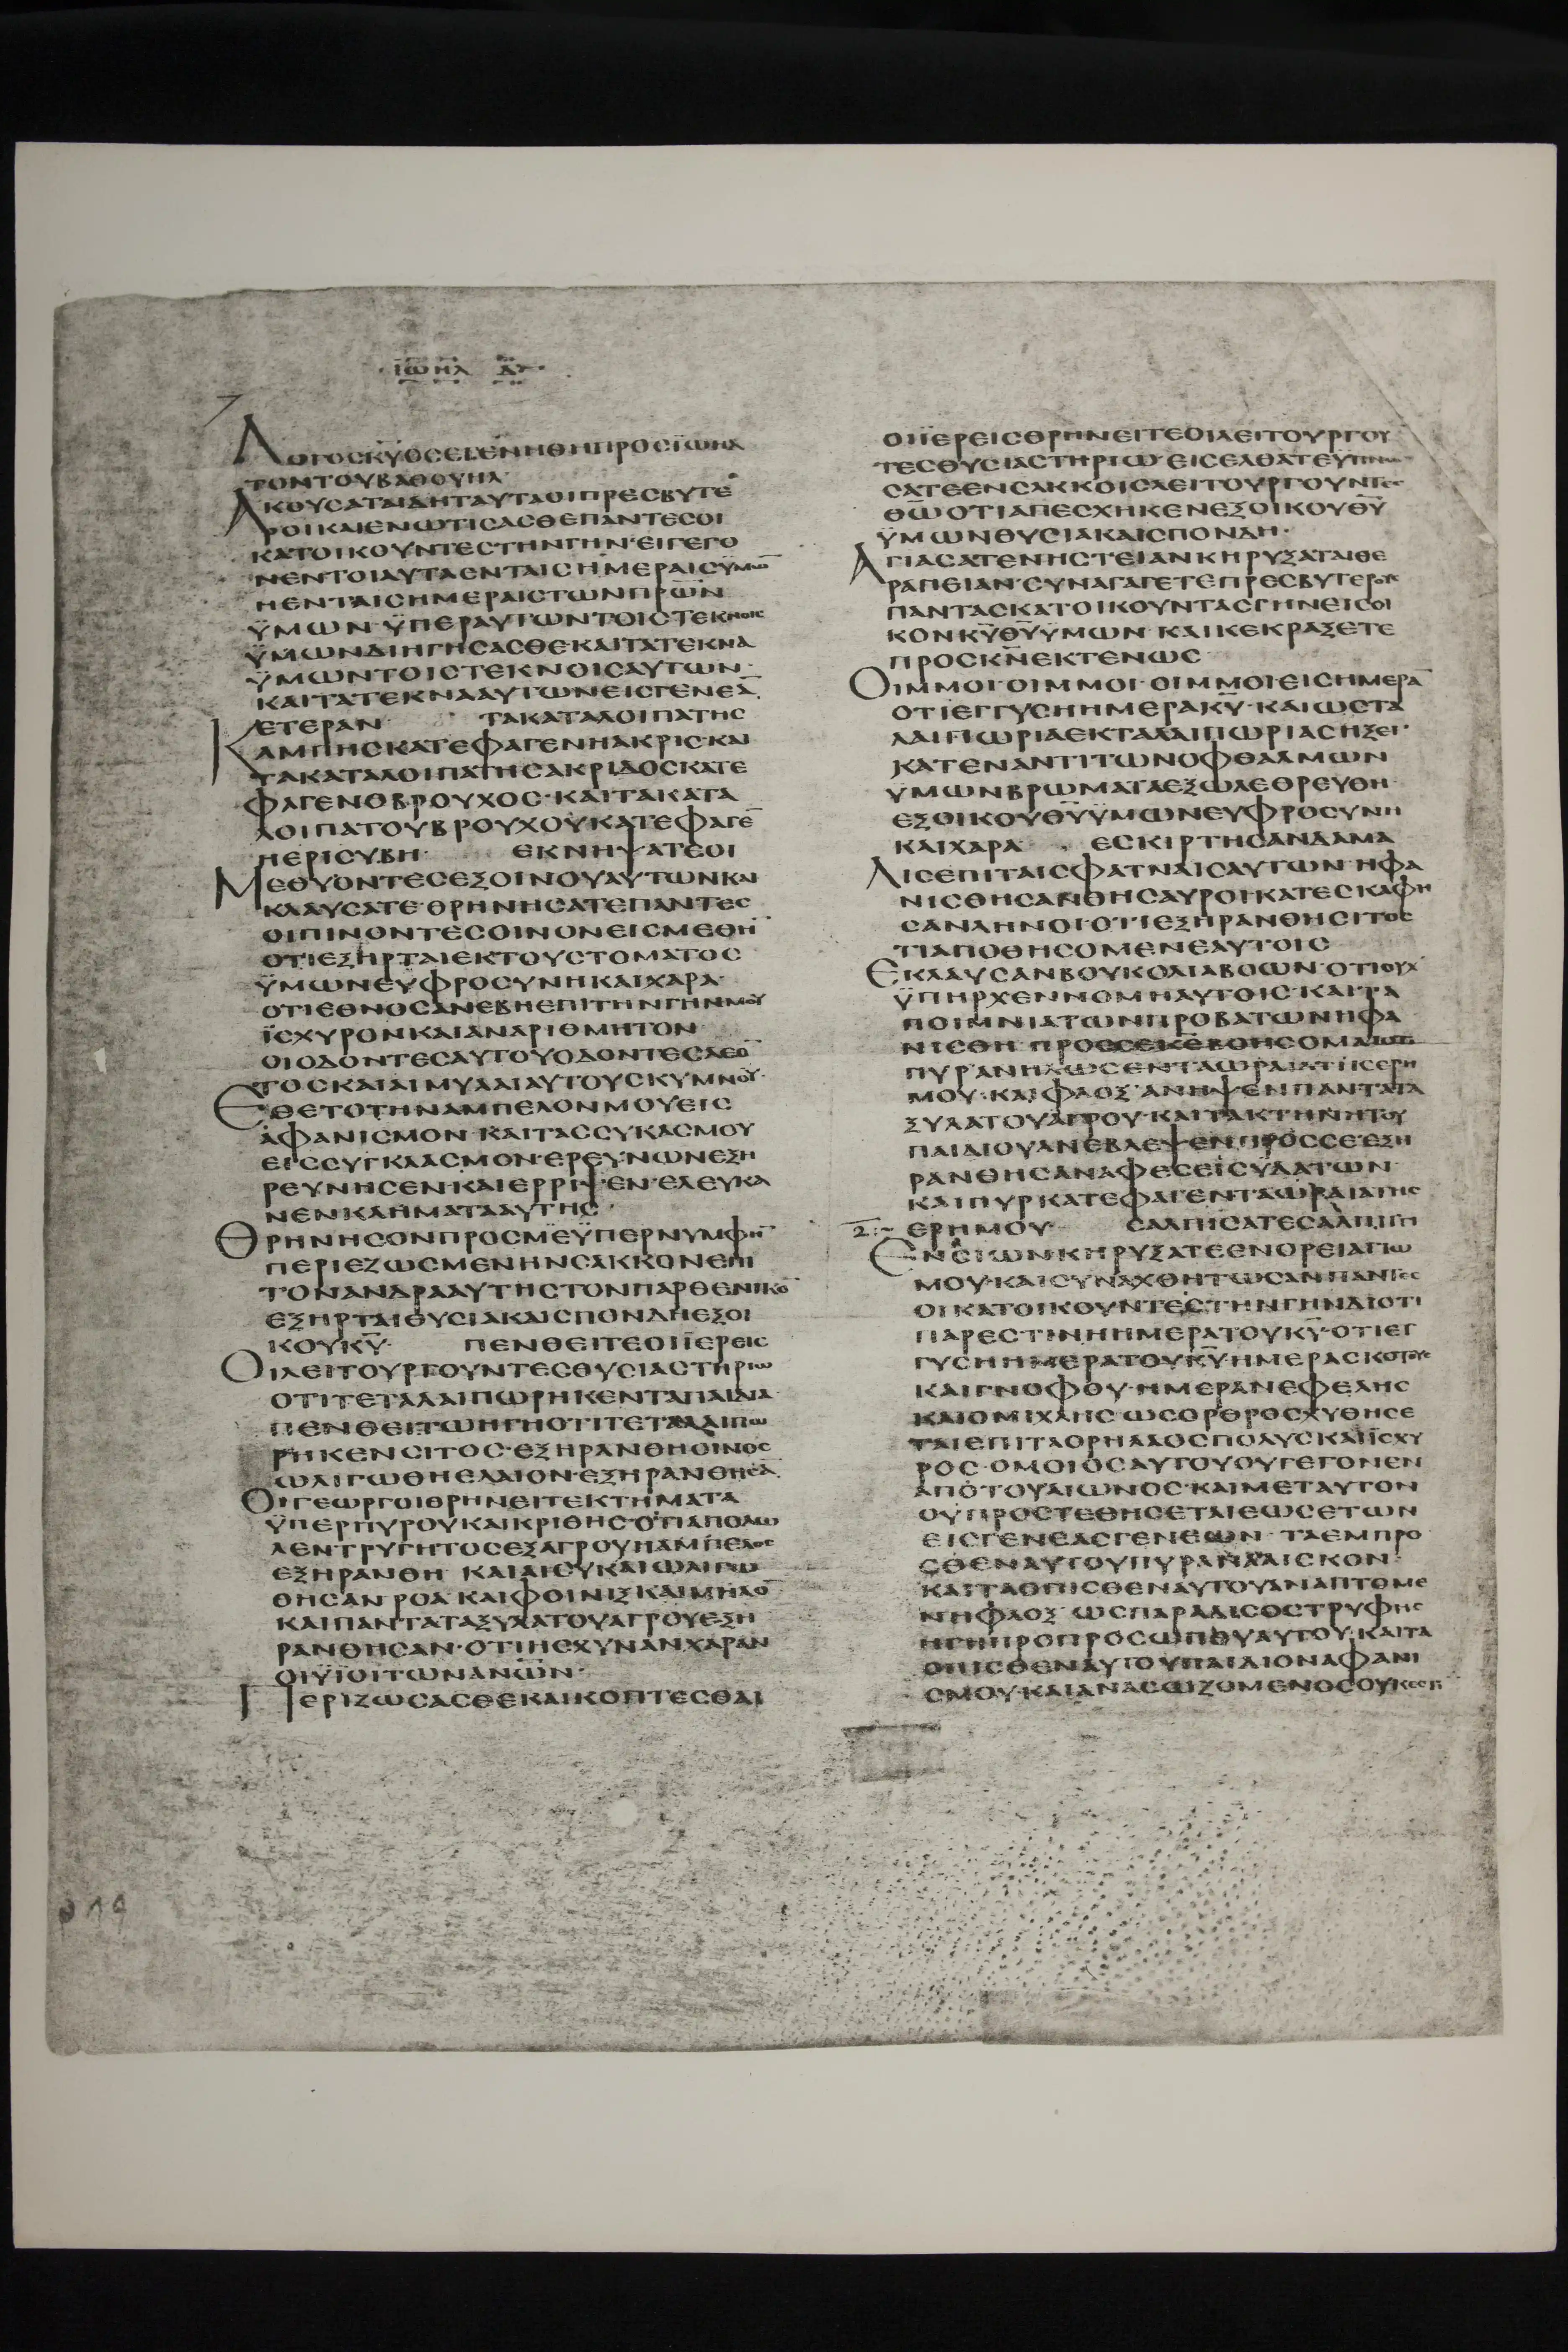 ΙΩΗΛ Δ
ΛΟΓΟΣ ΚΥ ΟΣ ΕΓΕΝΗΘΗ ΠΡΟΣ ΙΩΗΛ
ΤΟΝ ΤΟΥ ΒΑΘΟΥΗΛ
ΑΚΟΥΣΑΤΑΙ ΔΗ ΤΑΥΤΑ ΟΙ ΠΡΕΣΒΥΤΕ
ΡΟΙ ΚΑΙ ΕΝΩΤΙΣΑΣΘΕ ΠΑΝΤΕΣ ΟΙ
ΚΑΤΟΙΚΟΥΝΤΕΣ ΤΗΝ ΓΗΝ· ΕΙ ΓΕΓΟ
ΝΕΝ ΤΟΙΑΥΤΑ ΕΝ ΤΑΙΣ ΗΜΕΡΑΙΣ ΫΜΩ̅
Η ΕΝ ΤΑΙΣ ΗΜΕΡΑΙΣ ΤΩΝ ΠΡΩ̅Ν
ΫΜΩΝ· ΫΠΕΡ ΑΥΤΩΝ ΤΟΙΣ ΤΕΚΝΟΙΣ
ΫΜΩΝ ΔΙΗΓΗΣΑΣΘΕ ΚΑΙ ΤΑ ΤΕΚΝΑ
ΫΜΩΝ ΤΟΙΣ ΤΕΚΝΟΙΣ ΑΥΤΩΝ·
ΚΑΙ ΤΑ ΤΕΚΝΑ ΑΥΤΩΝ ΕΙΣ ΓΕΝΕΑ̅
ΕΤΕΡΑΝ ΤΑ ΚΑΤΑΛΟΙΠΑ ΤΗΣ
ΚΑΜΠΗΣ ΚΑΤΕΦΑΓΕΝ Η ΑΚΡΙΣ· ΚΑΙ
ΤΑ ΚΑΤΑΛΟΙΠΑ ΤΗΣ ΑΚΡΙΔΟΣ ΚΑΤΕ
ΦΑΓΕΝ Ο ΒΡΟΥΧΟΣ· ΚΑΙ ΤΑ ΚΑΤΑ
ΛΟΙΠΑ ΤΟΥ ΒΡΟΥΧΟΥ ΚΑΤΕΦΑΓΕ̅
Η ΕΡΙΣΥΒΗ· ΕΚΝΗΨΑΤΕ ΟΙ
ΜΕΘΥΟΝΤΕΣ ΕΞ ΟΙΝΟΥ ΑΥΤΩΝ ΚΑΙ
ΚΛΑΥΣΑΤΕ· ΘΡΗΝΗΣΑΤΕ ΠΑΝΤΕΣ
ΟΙ ΠΙΝΟΝΤΕΣ ΟΙΝΟΝ ΕΙΣ ΜΕΘΗ̅
ΟΤΙ ΕΞΗΡΤΑΙ ΕΚ ΤΟΥ ΣΤΟΜΑΤΟΣ
ΫΜΩΝ ΕΥΦΡΟΣΥΝΗ ΚΑΙ ΧΑΡΑ·
ΟΤΙ ΕΘΝΟΣ ΑΝΕΒΗ ΕΠΙ ΤΗΝ ΓΗΝ ΜΟΥ
ΪΣΧΥΡΟΝ ΚΑΙ ΑΝΑΡΙΘΜΗΤΟΝ
ΟΙ ΟΔΟΝΤΕΣ ΑΥΤΟΥ ΟΔΟΝΤΕΣ ΛΕΟ̅
ΤΟΣ ΚΑΙ ΑΙ ΜΥΛΑΙ ΑΥΤΟΥ ΣΚΥΜΝΟΥ·
ΕΘΕΤΟ ΤΗΝ ΑΜΠΕΛΟΝ ΜΟΥ ΕΙΣ
ΑΦΑΝΙΣΜΟΝ· ΚΑΙ ΤΑΣ ΣΥΚΑΣ ΜΟΥ
ΕΙΣ ΣΥΓΚΛΑΣΜΟΝ· ΕΡΕΥΝΩΝ ΕΞΗ
ΡΕΥΝΗΣΕΝ· ΚΑΙ ΕΡΡΙΨΕΝ· ΕΛΕΥΚΑ
ΝΕΝ ΚΛΗΜΑΤΑ ΑΥΤΗΣ·
ΘΡΗΝΗΣΟΝ ΠΡΟΣ ΜΕ ΫΠΕΡ ΝΥΜΦΗ̅
ΠΕΡΙΕΖΩΣΜΕΝΗΝ ΣΑΚΚΟΝ ΕΠΙ
ΤΟΝ ΑΝΔΡΑ ΑΥΤΗΣ ΤΟΝ ΠΑΡΘΕΝΙΚΟ̅
ΕΞΗΡΤΑΙ ΘΥΣΙΑ ΚΑΙ ΣΠΟΝΔΗ ΕΞ ΟΙ
ΚΟΥ ΚΥ̅· ΠΕΝΘΕΙΤΕ ΟΙ ΪΕΡΕΙΣ
ΟΙ ΛΕΙΤΟΥΡΓΟΥΝΤΕΣ ΘΥΣΙΑΣΤΗΡΙΩ
ΟΤΙ ΤΕΤΑΛΑΙΠΩΡΗΚΕΝ ΤΑ ΠΑΙΔΙΑ
ΠΕΝΘΕΙΤΩ Η ΓΗ ΟΤΙ ΤΕΤΑΛΑΙΠΩ
ΡΗΚΕΝ ΣΙΤΟΣ· ΕΞΗΡΑΝΘΗ ΟΙΝΟΣ
ΩΛΙΓΩΘΗ ΕΛΑΙΟΝ· ΕΞΗΡΑΝΘΗΣΑ̅
ΟΙ ΓΕΩΡΓΟΙ ΘΡΗΝΕΙΤΕ ΚΤΗΜΑΤΑ
ΫΠΕΡ ΠΥΡΟΥ ΚΑΙ ΚΡΙΘΗΣ· ΟΤΙ ΑΠΟΛΩ
ΛΕΝ ΤΡΥΓΗΤΟΣ ΕΞ ΑΓΡΟΥ Η ΑΜΠΕΛΟΣ
ΕΞΗΡΑΝΘΗ· ΚΑΙ ΑΙ ΣΥΚΑΙ ΩΛΙΓΩ
ΘΗΣΑΝ· ΡΟΑ· ΚΑΙ ΦΟΙΝΙΞ ΚΑΙ ΜΗΛΟ̅
ΚΑΙ ΠΑΝΤΑ ΤΑ ΞΥΛΑ ΤΟΥ ΑΓΡΟΥ ΕΞΗ
ΡΑΝΘΗΣΑΝ· ΟΤΙ ΗΣΧΥΝΑΝ ΧΑΡΑΝ
ΟΙ ΫΪΟΙ ΤΩΝ ΑΝΩ̅Ν·
ΠΕΡΙΖΩΣΑΣΘΕ ΚΑΙ ΚΟΠΤΕΣΘΑΙ
ΟΙ ΪΕΡΕΙΣ ΘΡΗΝΕΙΤΕ ΟΙ ΛΕΙΤΟΥΡΓΟΥ
ΤΕΣ ΘΥΣΙΑΣΤΗΡΙΩ· ΕΙΣΕΛΘΑΤΕ ΥΠΝΩ
ΣΑΤΕ ΕΝ ΣΑΚΚΟΙΣ ΛΕΙΤΟΥΡΓΟΥΝΤΕΣ
ΘΩ̅ ΟΤΙ ΑΠΕΣΧΗΚΕΝ ΕΞ ΟΙΚΟΥ ΘΥ̅
ΫΜΩΝ ΘΥΣΙΑ ΚΑΙ ΣΠΟΝΔΗ·
ΑΓΙΑΣΑΤΕ ΝΗΣΤΕΙΑΝ ΚΗΡΥΞΑΤΑΙ ΘΕ
ΡΑΠΕΙΑΝ· ΣΥΝΑΓΑΓΕΤΕ ΠΡΕΣΒΥΤΕΡΟΥΣ
ΠΑΝΤΑΣ ΚΑΤΟΙΚΟΥΝΤΑΣ ΓΗΝ ΕΙΣ ΟΙ
ΚΟΝ ΚΥ̅ ΘΥ̅ ΫΜΩΝ· ΚΑΙ ΚΕΚΡΑΞΕΤΕ
ΠΡΟΣ ΚΝ̅ ΕΚΤΕΝΩΣ
ΟΙΜΜΟΙ· ΟΙΜΜΟΙ· ΟΙΜΜΟΙ· ΕΙΣ ΗΜΕΡΑ̅
ΟΤΙ ΕΓΓΥΣ Η ΗΜΕΡΑ ΚΥ̅· ΚΑΙ ΩΣ ΤΑ
ΛΑΙΠΩΡΙΑ ΕΚ ΤΑΛΑΙΠΩΡΙΑΣ ΗΞΕΙ·
ΚΑΤΕΝΑΝΤΙ ΤΩΝ ΟΦΘΑΛΜΩΝ
ΥΜΩΝ ΒΡΩΜΑΤΑ ΕΞΩΛΕΘΡΕΥΘΗ
ΕΞ ΟΙΚΟΥ ΘΥ̅ ΫΜΩΝ ΕΥΦΡΟΣΥΝΗ
ΚΑΙ ΧΑΡΑ ΕΣΚΙΡΤΗΣΑΝ ΔΑΜΑ
ΛΙΣ ΕΠΙ ΤΑΙΣ ΦΑΤΝΑΙΣ ΑΥΤΩΝ· ΗΦΑ
ΝΙΣΘΗΣΑΝ ΘΗΣΑΥΡΟΙ· ΚΑΤΕΣΚΑΦΗ
ΣΑΝ ΛΗΝΟΙ· ΟΤΙ ΕΞΗΡΑΝΘΗ ΣΙΤΟΣ
ΤΙ ΑΠΟΘΗΣΟΜΕΝ ΕΑΥΤΟΙΣ
ΕΚΛΑΥΣΑΝ ΒΟΥΚΟΛΙΑ ΒΟΩΝ· ΟΤΙ ΟΥΧ
ΫΠΗΡΧΕΝ ΝΟΜΗ ΑΥΤΟΙΣ· ΚΑΙ ΤΑ
ΠΟΙΜΝΙΑ ΤΩΝ ΠΡΟΒΑΤΩΝ ΗΦΑ
ΝΙΣΘΗ· ΠΡΟΣ ΣΕ ΚΕ̅ ΒΟΗΣΟΜΑΙ ΟΤΙ
ΠΥΡ ΑΝΗΛΩΣΕΝ ΤΑ ΩΡΑΙΑ ΤΗΣ ΕΡΗ
ΜΟΥ· ΚΑΙ ΦΛΟΞ ΑΝΗΨΕΝ ΠΑΝΤΑ ΤΑ
ΞΥΛΑ ΤΟΥ ΑΓΡΟΥ· ΚΑΙ ΤΑ ΚΤΗΝΗ ΤΟΥ
ΠΑΙΔΙΟΥ ΑΝΕΒΛΕΨΕΝ ΠΡΟΣ ΣΕ· ΕΞΗ
ΡΑΝΘΗΣΑΝ ΑΦΕΣΕΙΣ ΫΔΑΤΩΝ·
ΚΑΙ ΠΥΡ ΚΑΤΕΦΑΓΕΝ ΤΑ ΩΡΑΙΑ ΤΗΣ
ΕΡΗΜΟΥ· ΣΑΛΠΙΣΑΤΕ ΣΑΛΠΙΓΓΙ
ΕΝ ΣΙΩΝ ΚΗΡΥΞΑΤΕ ΕΝ ΟΡΕΙ ΑΓΙΩ
ΜΟΥ· ΚΑΙ ΣΥΝΑΧΘΗΤΩΣΑΝ ΠΑΝΤΕΣ
ΟΙ ΚΑΤΟΙΚΟΥΝΤΕΣ ΤΗΝ ΓΗΝ ΔΙΟΤΙ
ΠΑΡΕΣΤΙΝ Η ΗΜΕΡΑ ΤΟΥ ΚΥ̅· ΟΤΙ ΕΓ
ΓΥΣ Η ΗΜΕΡΑ ΤΟΥ ΚΥ̅· ΗΜΕΡΑ ΣΚΟΤΟΥΣ
ΚΑΙ ΓΝΟΦΟΥ· ΗΜΕΡΑ ΝΕΦΕΛΗΣ
ΚΑΙ ΟΜΙΧΛΗΣ· ΩΣ ΟΡΘΡΟΣ ΧΥΘΗΣΕ
ΤΑΙ ΕΠΙ ΤΑ ΟΡΗ ΛΑΟΣ ΠΟΛΥΣ ΚΑΙ ΪΣΧΥ
ΡΟΣ· ΟΜΟΙΟΣ ΑΥΤΟΥ ΟΥ ΓΕΓΟΝΕΝ
ΑΠΟ ΤΟΥ ΑΙΩΝΟΣ· ΚΑΙ ΜΕΤ ΑΥΤΟΝ
ΟΥ ΠΡΟΣΤΕΘΗΣΕΤΑΙ ΕΩΣ ΕΤΩΝ
ΕΙΣ ΓΕΝΕΑΣ ΓΕΝΕΩΝ· ΤΑ ΕΜΠΡΟ
ΣΘΕΝ ΑΥΤΟΥ ΠΥΡ ΑΝΑΛΙΣΚΟΝ·
ΚΑΙ ΤΑ ΟΠΙΣΘΕΝ ΑΥΤΟΥ ΑΝΑΠΤΟΜΕ
ΝΗ ΦΛΟΞ· ΩΣ ΠΑΡΑΔΙΣΟΣ ΤΡΥΦΗΣ
Η ΓΗ ΠΡΟ ΠΡΟΣΩΠΟΥ ΑΥΤΟΥ· ΚΑΙ ΤΑ
ΟΠΙΣΘΕΝ ΑΥΤΟΥ ΠΑΙΔΙΟΝ ΑΦΑΝΙ
ΣΜΟΥ· ΚΑΙ ΑΝΑΣΩΖΟΜΕΝΟΣ ΟΥΚ ΕΣΤΙ